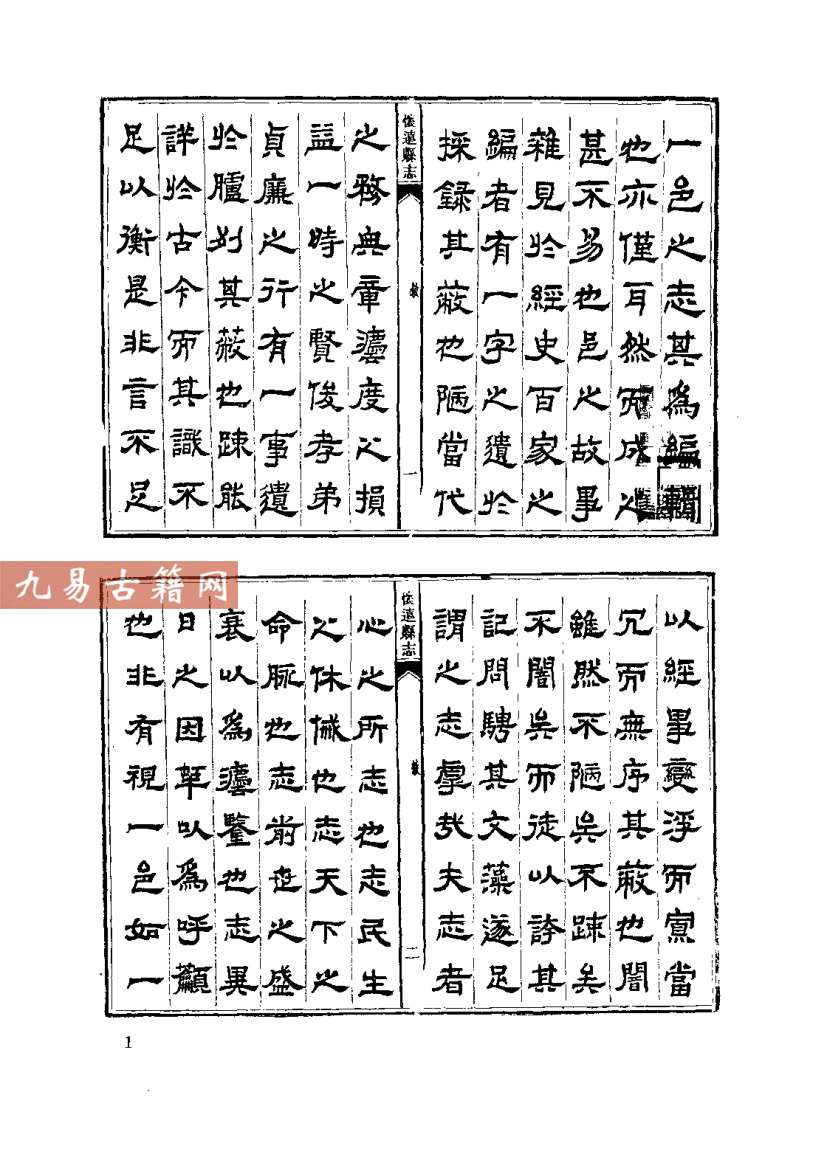 一邑之志其為編輯
也亦僅耳然而成之
甚不易也邑之故事
雜見於經史百家之
編者有一字之遺於
採録其蔽也陋當代
懷遠縣志 敘 一
之務典章灋度之損
益一時之賢俊孝弟
貞廉之行有一事遺
於臚列其蔽也疎能
詳於古今而其識不
足以衡是非言不足
九易古籍网
以經事變浮而寡當
冗而無序其蔽也闇
雖然不陋矣不疎矣
不闇矣而徒以誇其
記問騁其文藻遂足
謂之志虖哉夫志者
懷遠縣志 敘 二
心之所志也志民生
之休慽也志天下之
命脈也志前世之盛
衰以為灋鑒也志異
日之因革以為呼籲
也非有視一邑如一
1